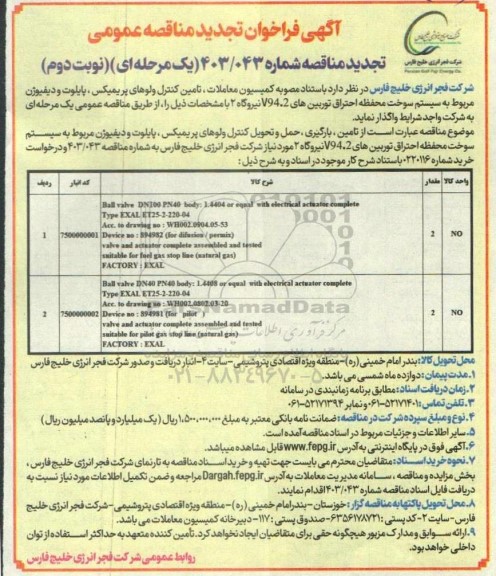 آگهی فراخوان تجدید مناقصه عمومی
تجدید مناقصه شماره ۴۰۳/۰۴۳ (یک مرحله ای) (نوبت دوم)
شرکت فجر انرژی خلیج فارس
Persian Gulf Fajr Energy Co.
شرکت فجر انرژی خلیج فارس در نظر دارد باستناد مصوبه کمیسیون معاملات ، تامین کنترل ولوهای پریمیکس ، پایلوت و دیفیوژن
مربوط به سیستم سوخت محفظه احتراق توربین های V94.2 نیروگاه ۲ با مشخصات ذیل را، از طریق مناقصه عمومی یک مرحله ای
به شرکت واجد شرایط واگذار نماید.
موضوع مناقصه عبارت است از تامین ، بارگیری ، حمل و تحویل کنترل ولوهای پریمیکس ، پایلوت و دیفیوژن مربوط به سیستم
سوخت محفظه احتراق توربین های V94.2 نیروگاه ۲ مورد نیاز شرکت فجر انرژی خلیج فارس به شماره مناقصه ۴۰۳/۰۴۳ و درخواست
خرید شماره ۰۲۲۰۱۱۶ باستناد شرح کار موجود در اسناد و به شرح ذیل :
ردیف کد انبار شرح کالا مقدار واحد کالا
1 7500000001 2 NO
Ball valve DN100 PN40 body: 1.4404 or equal with electrical actuator complete
Type EXAL ET25-2-220-04
Acc. to drawing no : WH002.0904.05-53
Device no : 894982 (for difusion / permix)
valve and actuator complete assembled and tested
suitable for fuel gas stop line (natural gas)
FACTORY : EXAL
2 7500000002 2 NO
Ball valve DN40 PN40 body: 1.4408 or equal with electrical actuator complete
Type EXAL ET25-2-220-04
Acc. to drawing no : WH002.0802.03-20
Device no : 894981 (for pilot )
valve and actuator complete assembled and tested
suitable for pilot gas stop line (natural gas)
FACTORY : EXAL
ParsNamadData
۰۲۱-۸۸۳۴۹۶۷۰-۵
محل تحویل کالا: بندر امام خمینی (ره) - منطقه ویژه اقتصادی پتروشیمی - سایت ۴- انبار دریافت و صدور شرکت فجر انرژی خلیج فارس
۱. مدت پیمان: دوازده ماه شمسی می باشد.
۲. زمان دریافت اسناد: مطابق برنامه زمانبندی در سامانه
۳. تلفن تماس: ۰۶۱-۵۲۱۷۱۴۰۱ و نمابر ۰۶۱-۵۲۱۷۱۳۹۴
۴. نوع و مبلغ سپرده شرکت در مناقصه: ضمانت نامه بانکی معتبر به مبلغ ۱،۵۰۰،۰۰۰،۰۰۰ ریال (یک میلیارد و پانصد میلیون ریال)
۵. سایر اطلاعات و جزئیات مربوط در اسناد مناقصه آمده است.
۶. آگهی فوق در پایگاه اینترنتی به آدرس www.fepg.ir قابل مشاهده میباشد.
۷. نحوه خرید اسناد: متقاضیان محترم می بایست جهت تهیه و خرید اسناد مناقصه به تارنمای شرکت فجر انرژی خلیج فارس ،
بخش مزایده و مناقصه ، سامانه مدیریت معاملات به آدرس Dargah.fepg.ir مراجعه و ضمن تکمیل اطلاعات مورد نیاز نسبت به
دریافت فایل اسناد مناقصه شماره ۴۰۳/۰۴۳ اقدام نمایند.
۸. محل تحویل پاکتها به مناقصه گزار: خوزستان - بندر امام خمینی (ره) - منطقه ویژه اقتصادی پتروشیمی - شرکت فجر انرژی خلیج
فارس - سایت ۲- کد پستی : ۶۳۵۶۱۷۸۷۲۱ - صندوق پستی : ۱۱۷- دبیرخانه کمیسیون معاملات می باشد.
۹. ارائه سوابق و مدارک مزبور هیچگونه حقی برای متقاضیان ایجاد نخواهد کرد. تأمین کننده متعهد به حداکثر استفاده از توان
داخلی خواهد بود.
روابط عمومی شرکت فجر انرژی خلیج فارس